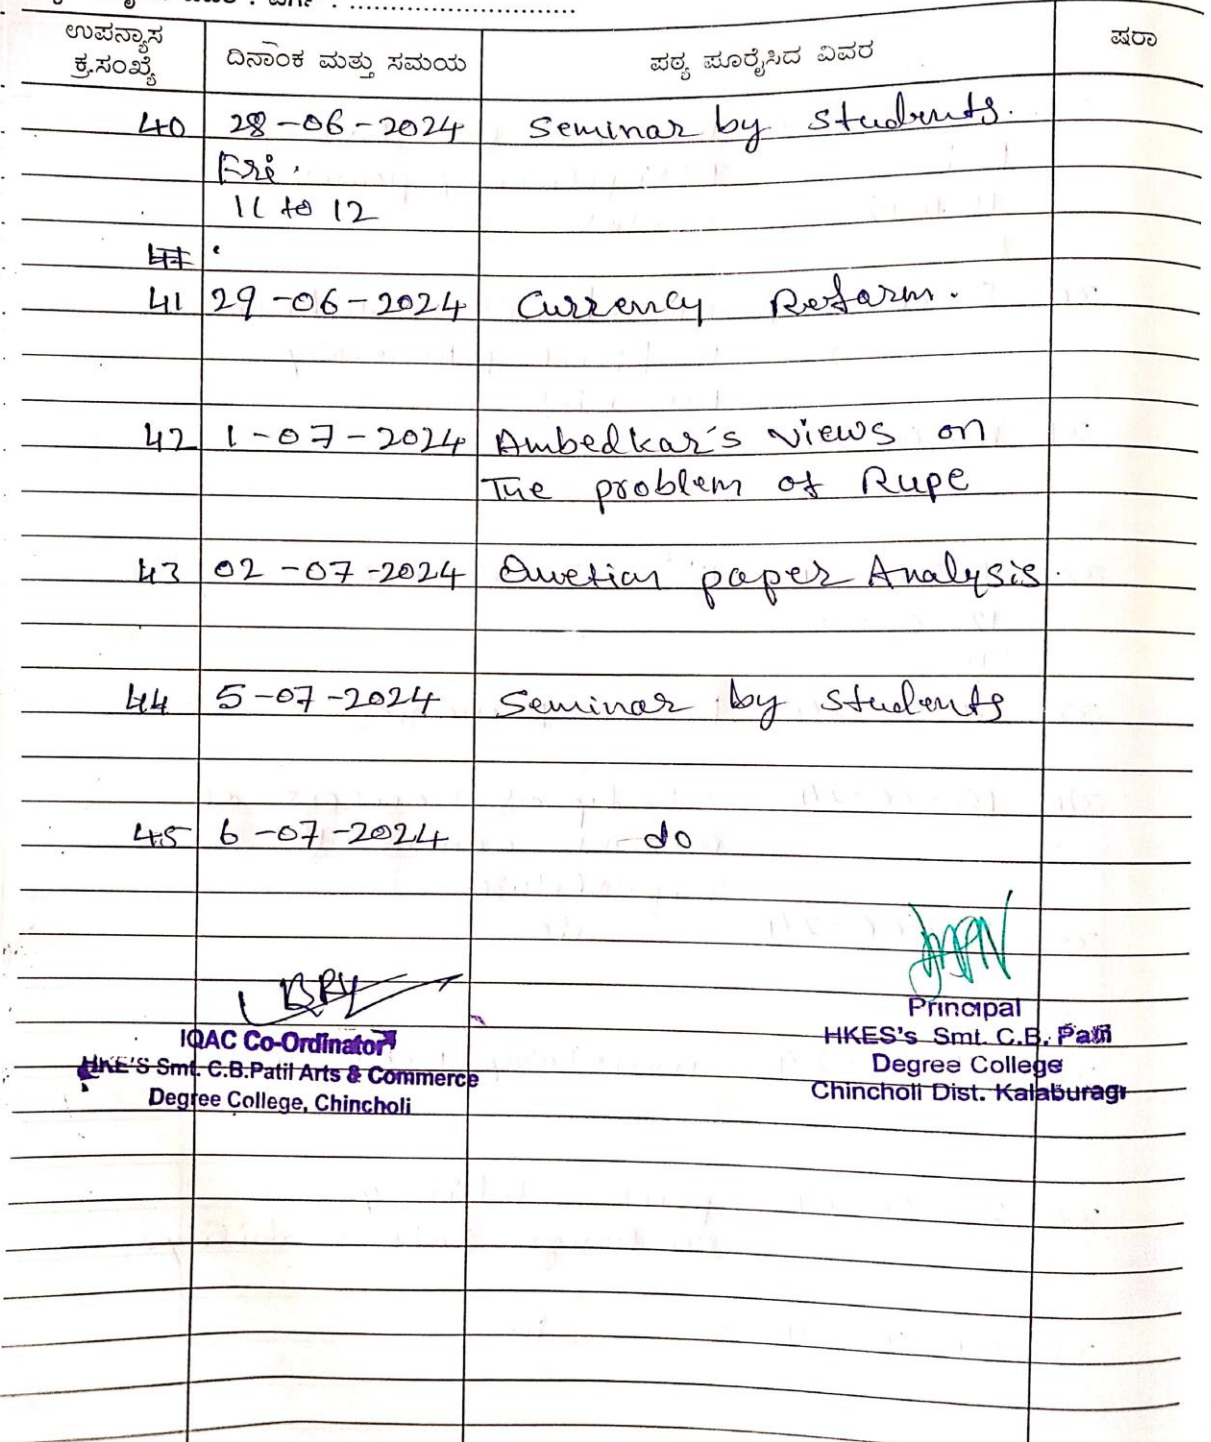 ಉಪನ್ಯಾಸ ಕ್ರ.ಸಂಖ್ಯೆ ದಿನಾಂಕ ಮತ್ತು ಸಮಯ ಪಠ್ಯ ಪೂರೈಸಿದ ವಿವರ ಷರಾ
40 28-06-2024 Seminar by students.
Fri.
11 to 12
41 29-06-2024 Currency Reform.
42 1-07-2024 Ambedkar's views on
The problem of Rupe
43 02-07-2024 paper Analysis.
44 5-07-2024 Seminar by students
45 6-07-2024 - do
IQAC Co-Ordinator
HKE'S Smt. C.B.Patil Arts & Commerce
Degree College, Chincholi
Principal
HKES's Smt. C.B. Patil
Degree College
Chincholi Dist. Kalaburagi